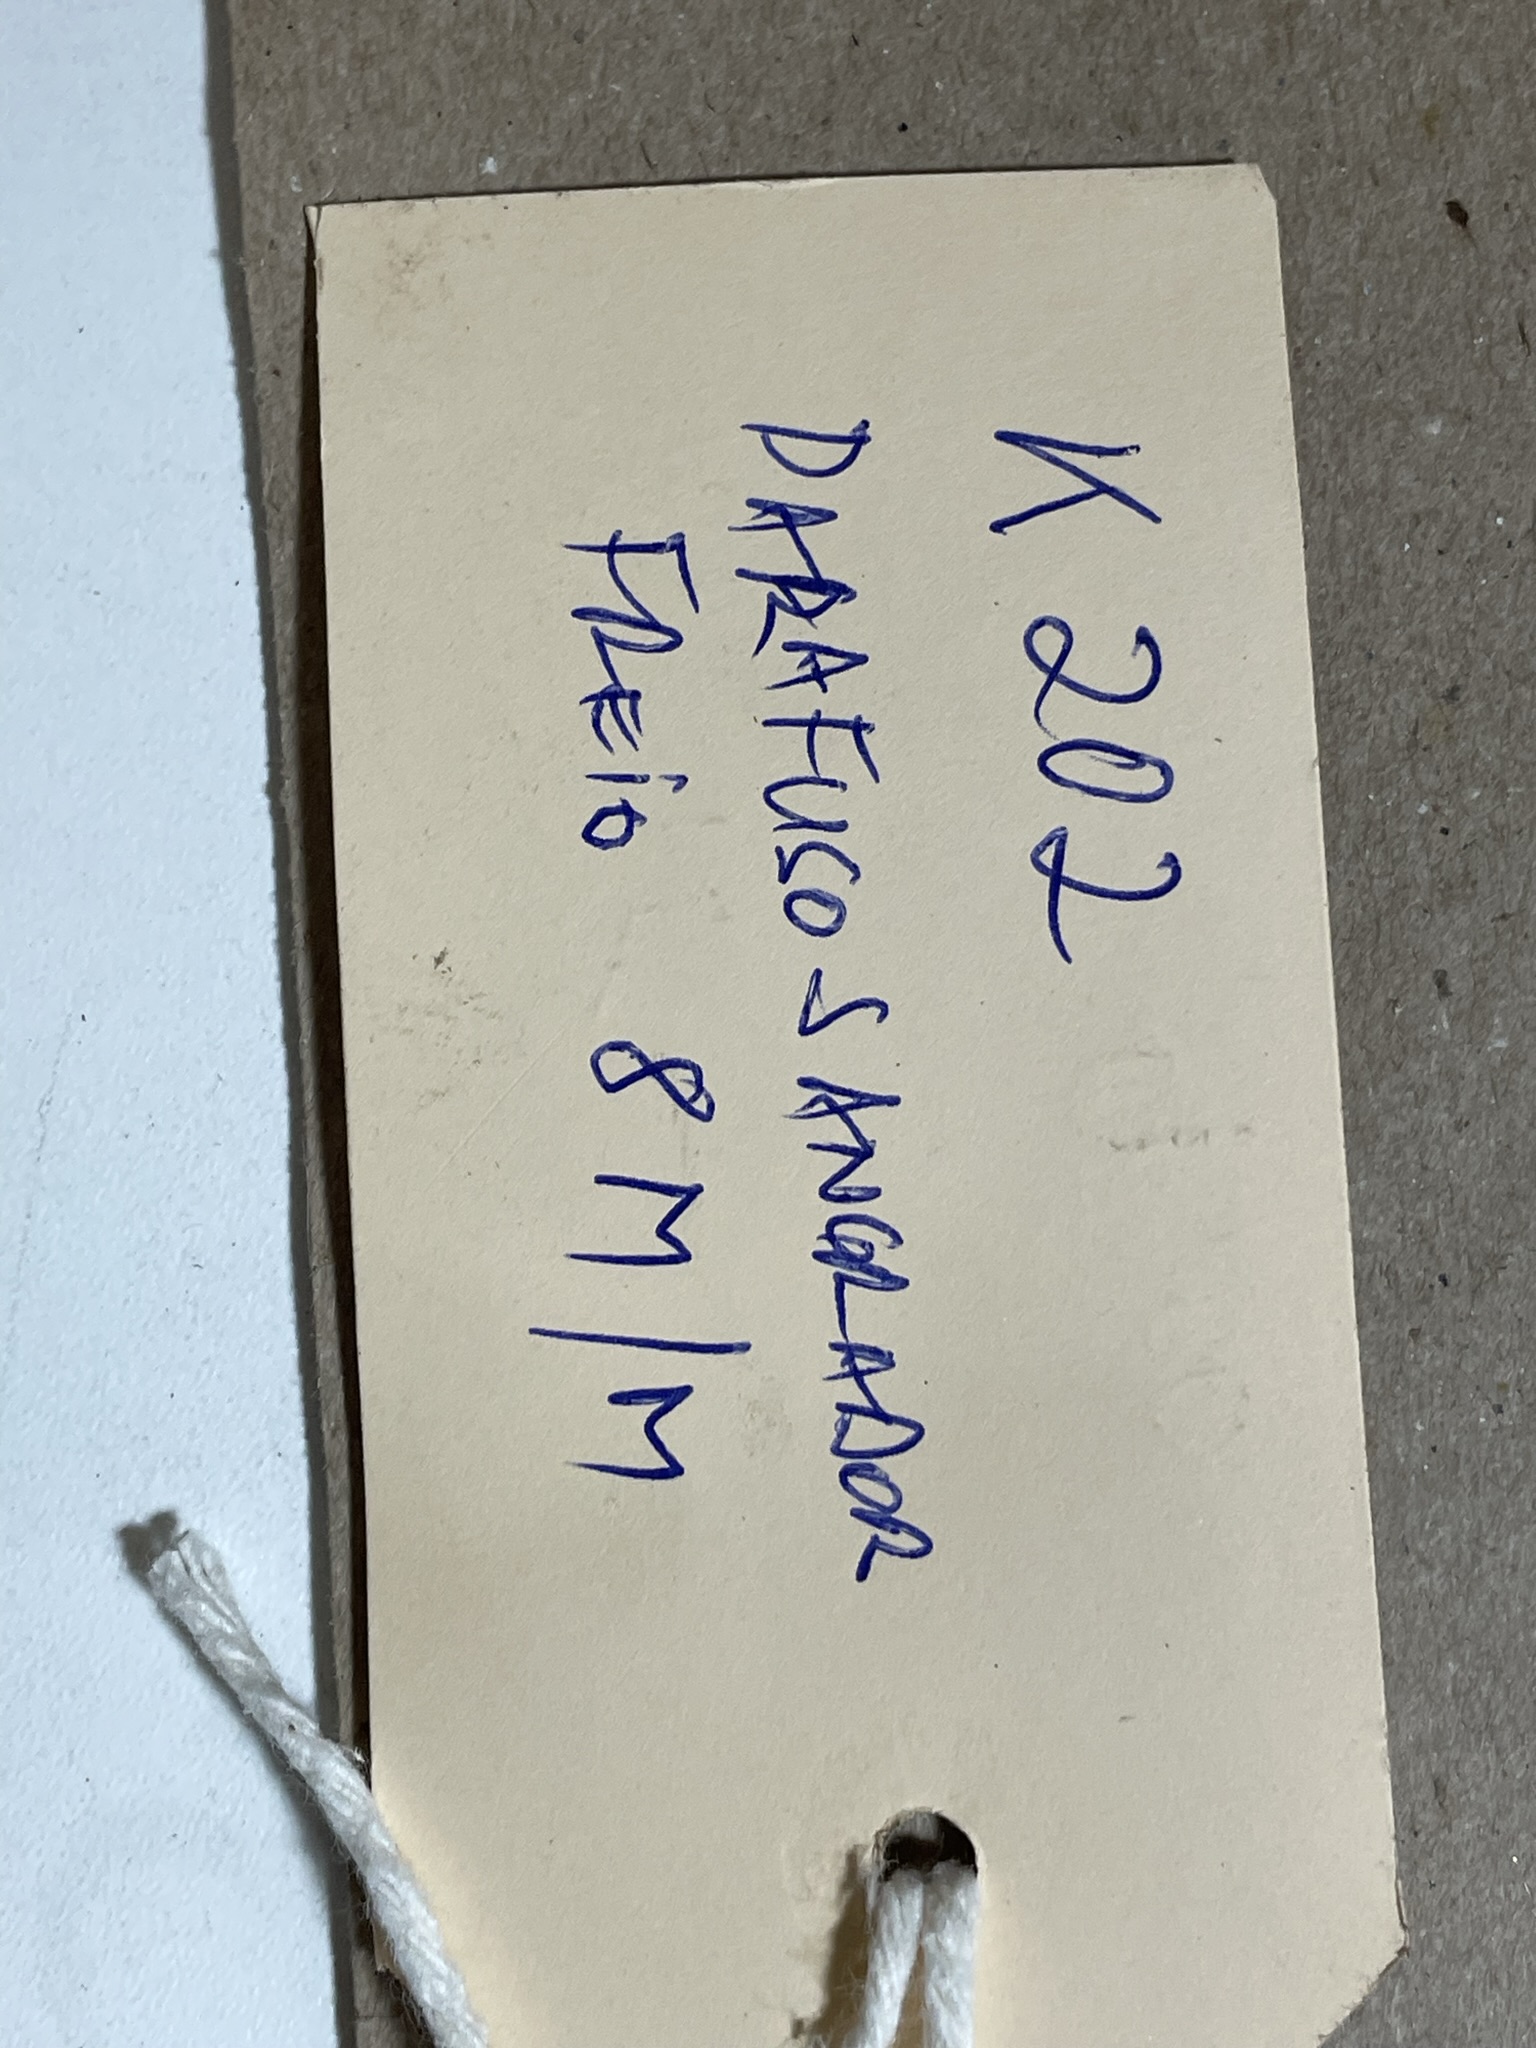 K 202
PARAFUSO SANGRADOR
FREiO 8 M/M